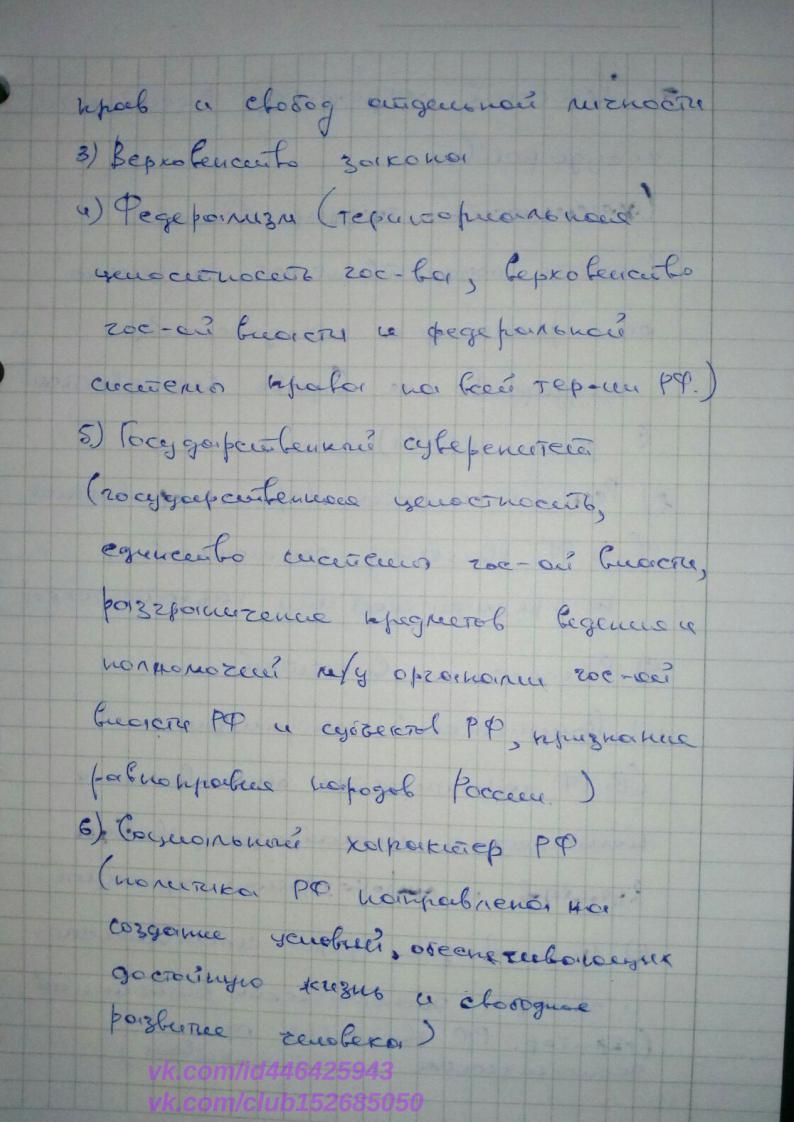 прав и свобод отдельной личности
3) Верховенство закона
4) Федерализм (территориальная
целостность гос-ва, верховенство
гос-ой власти и федеральной
системы права на всей тер-ии РФ.)
5) Государственный суверенитет
(государственная целостность,
единство системы гос-ой власти,
разграничение предметов ведения и
полномочий м/у органами гос-ой
власти РФ и субъектов РФ, признание
равноправия народов России)
6) Социальный характер РФ
(политика РФ направлена на
создание условий, обеспечивающих
достойную жизнь и свободное
развитие человека)
vk.com/id446425943
vk.com/club152685050